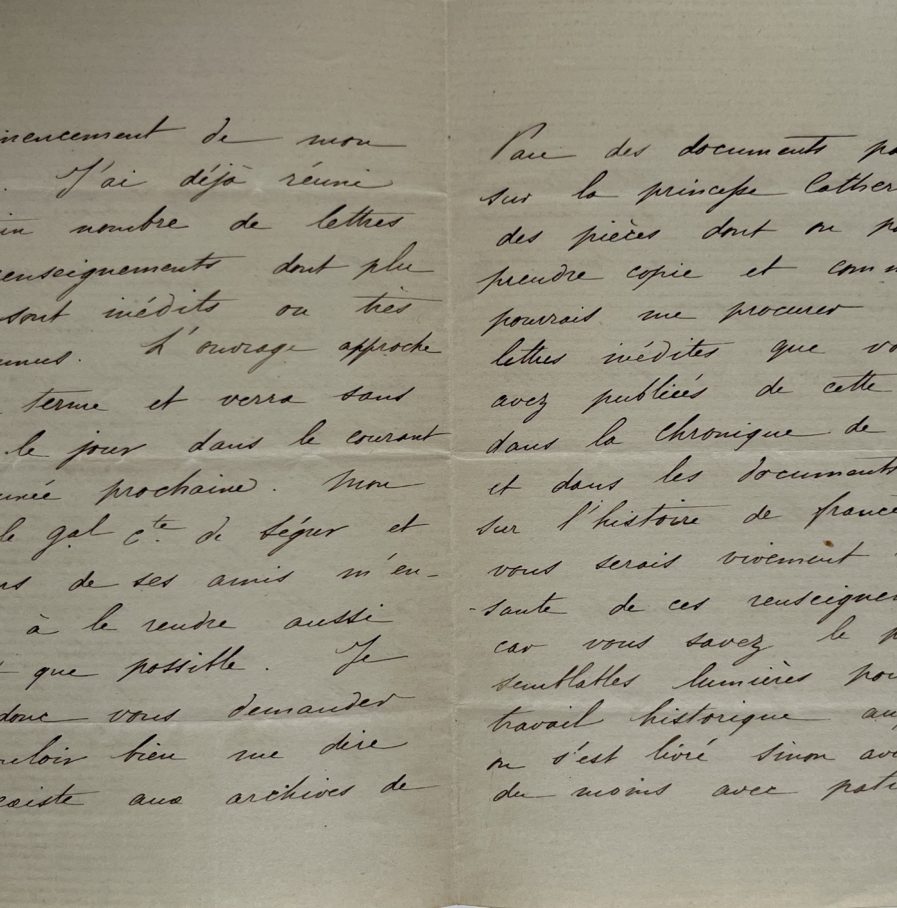 mencement de mon
. J'ai déjà réuni
in nombre de lettres
enseignements dont plu
sont inédits ou très
nnus. L'ouvrage approche
terme et verra sans
le jour dans le courant
nnée prochaine. Mon
le gal cte de Ségur et
ns de ses amis m'en-
à le rendre aussi
t que possible. Je
donc vous demander
uloir bien me dire
existe aux archives de
Pau des documents po
sur la princesse Cather
des pièces dont on po
prendre copie et comm
pourrais me procurer
lettres inédites que vo
avez publiées de cette
dans la chronique de
et dans les documents
sur l'histoire de france
vous serais vivement
sante de ces renseigne
car vous savez le p
semblables lumières pou
travail historique au
on s'est livré sinon ave
du moins avec pati